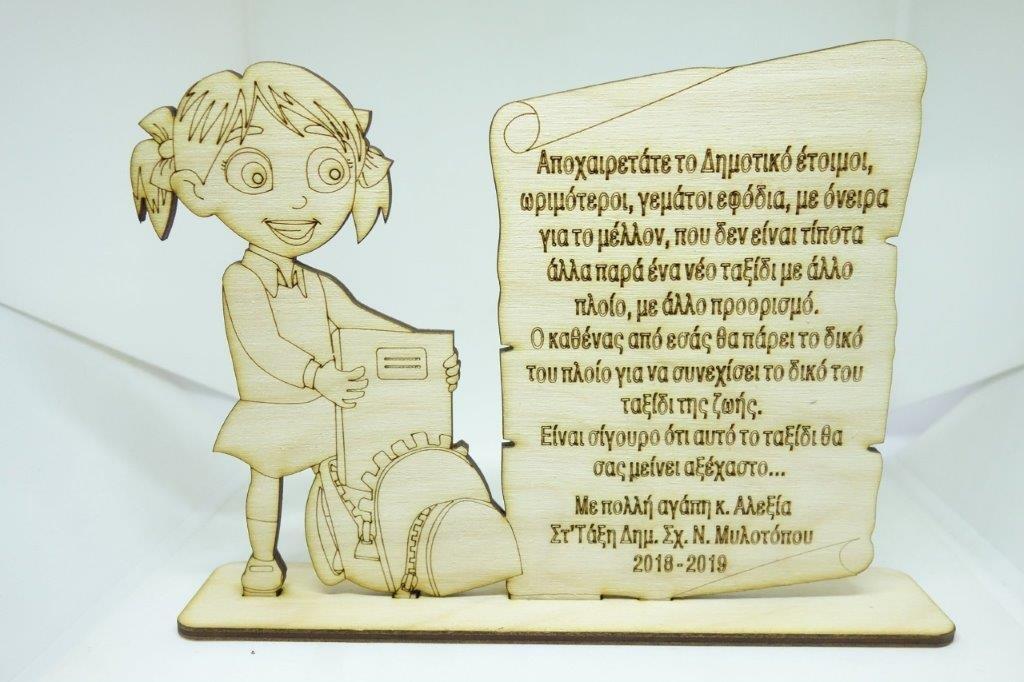 Αποχαιρετάτε το Δημοτικό έτοιμοι,
ωριμότεροι, γεμάτοι εφόδια, με όνειρα
για το μέλλον, που δεν είναι τίποτα
άλλα παρά ένα νέο ταξίδι με άλλο
πλοίο, με άλλο προορισμό.
Ο καθένας από εσάς θα πάρει το δικό
του πλοίο για να συνεχίσει το δικό του
ταξίδι της ζωής.
Είναι σίγουρο ότι αυτό το ταξίδι θα
σας μείνει αξέχαστο...
Με πολλή αγάπη κ. Αλεξία
Στ'Τάξη Δημ. Σχ. Ν. Μυλοτόπου
2018-2019